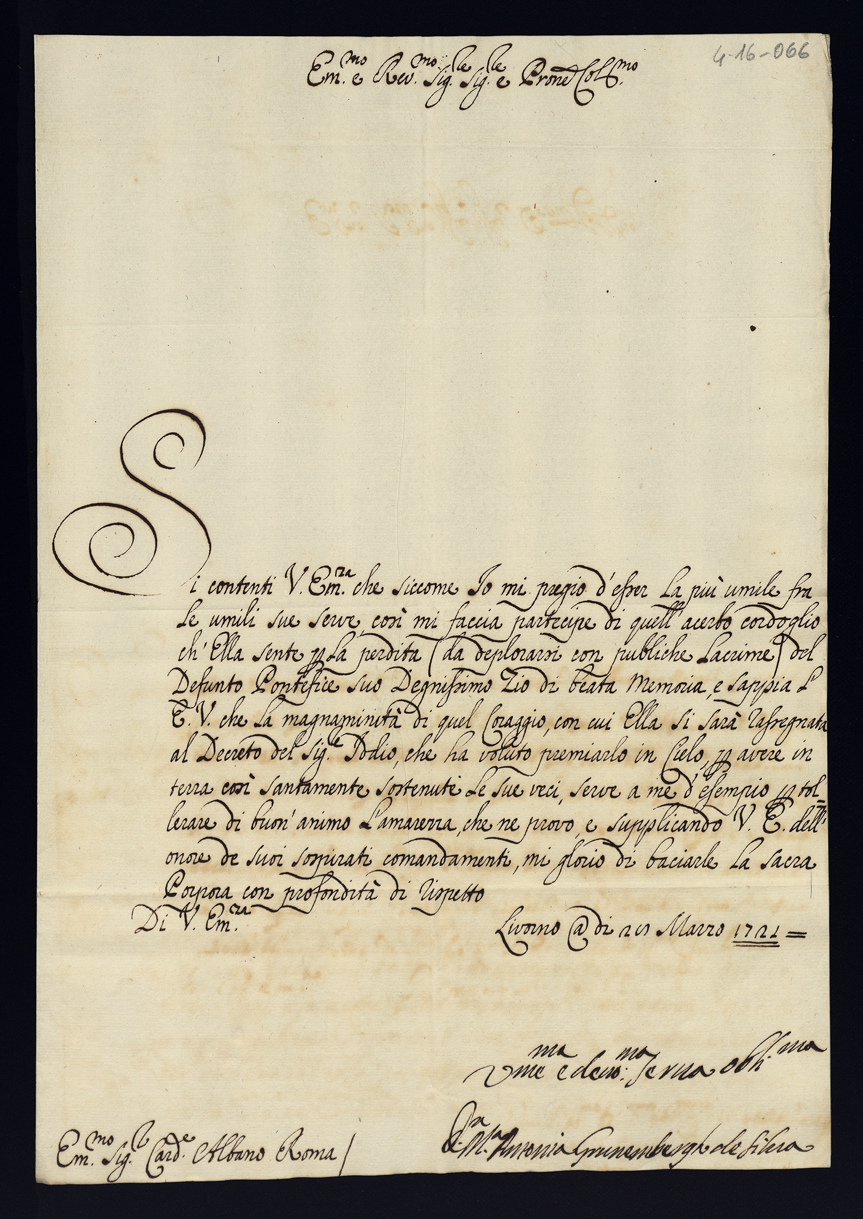 4-16-066
Em.mo e Rev.mo Sig.re Sig.re e Prone Col.mo
Si contenti V. Em.za che siccome Io mi pregio d'esser la più umile fra
le umili sue serve, così mi faccia partecipe di quell'acerbo cordoglio
ch'Ella sente p la perdita (da deplorarsi con pubbliche Lacrime) del
Defunto Pontefice suo Degnissimo Zio di beata Memoria, e sappia l'
E. V. che la magnaminità di quel Coraggio, con cui Ella si sarà rassegnata
al Decreto del Sig.e Iddio, che ha voluto premiarlo in Cielo, p avere in
terra così santamente sostenute le sue veci, serve a me d'esempio p tol=
lerare di buon'animo l'amarezza, che ne provo, e supplicando V. E. dell'
onore de suoi sospirati comandamenti, mi glorio di baciarle la sacra
Porpora con profondità di rispetto
Di V. Em.za
Livorno @ di Marzo 1721 =
Vme e devo.ma Serva obli.ma
M.a Antonia Grunembergh de Silva
Em.mo Sig.r Card.e Albano Roma /